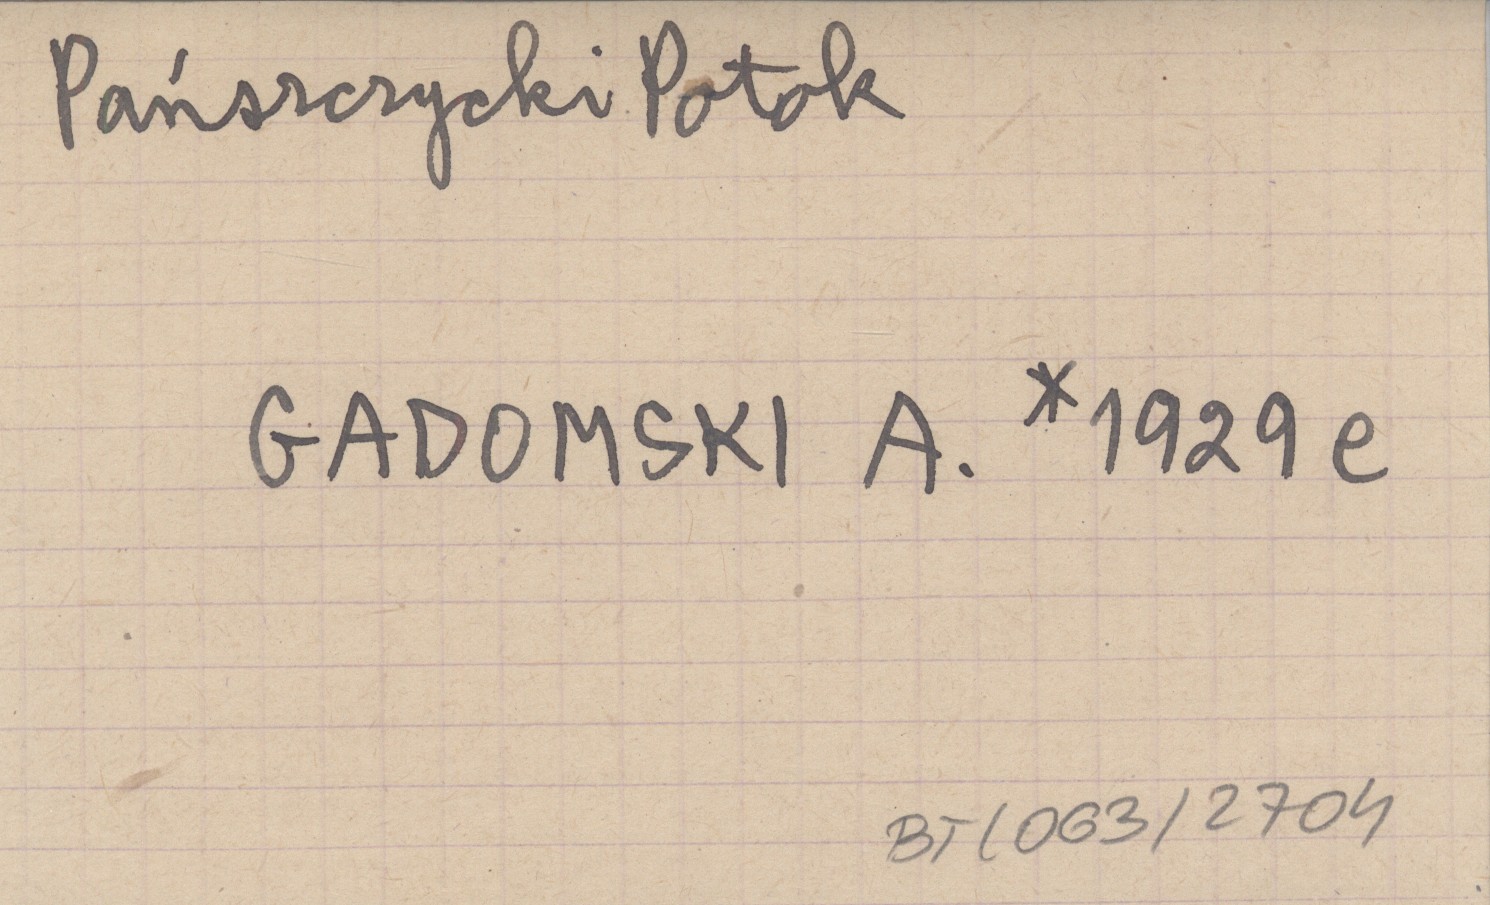 Pańszczycki Potok
GADOMSKI A. *1929 e
BT(063)2704